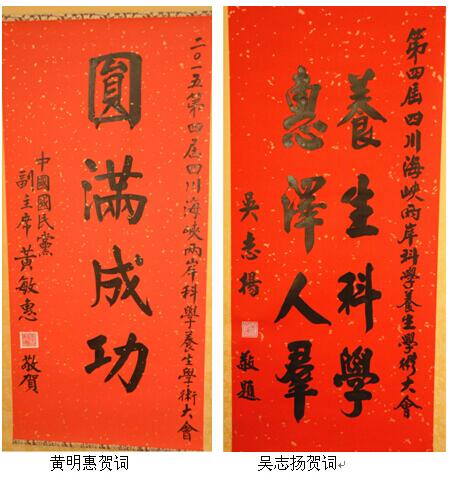 二〇一五第四屆四川海峽兩岸科學養生學術大會
圓滿成功
中國國民黨
副主席 黃敏惠 敬賀
第四屆四川海峽兩岸科學養生學術大會
養生科學
惠澤人羣
吳志揚 敬題
黄明惠贺词
吴志扬贺词